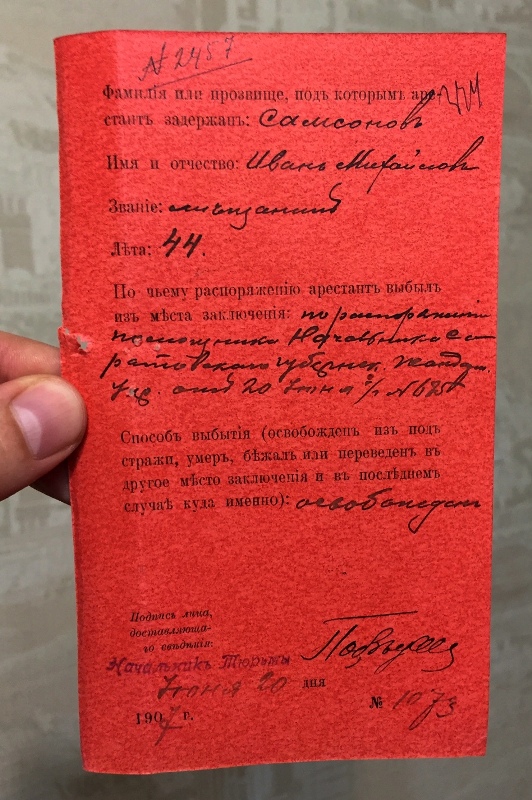 № 2457
Фамилія или прозвище, подъ которымъ аре-
стантъ задержанъ: Самсоновъ
Имя и отчество: Иванъ Михайловъ
Званіе: мѣщанинъ
Лѣта: 44.
По чьему распоряженію арестантъ выбылъ
изъ мѣста заключенія: по распоряженію
помощника Начальника Са
ратовскаго Губернск. Жандар.
Упр. отъ 20 Іюня с/г №
Способъ выбытія (освобожденъ изъ подъ
стражи, умеръ, бѣжалъ или переведенъ въ
другое мѣсто заключенія и въ послѣднемъ
случаѣ куда именно): освобожденъ
Подпись лица,
доставляюща-
го свѣдѣнія:
Начальникъ Тюрьмы
Іюня 20 дня
1907 г.
№ 1073